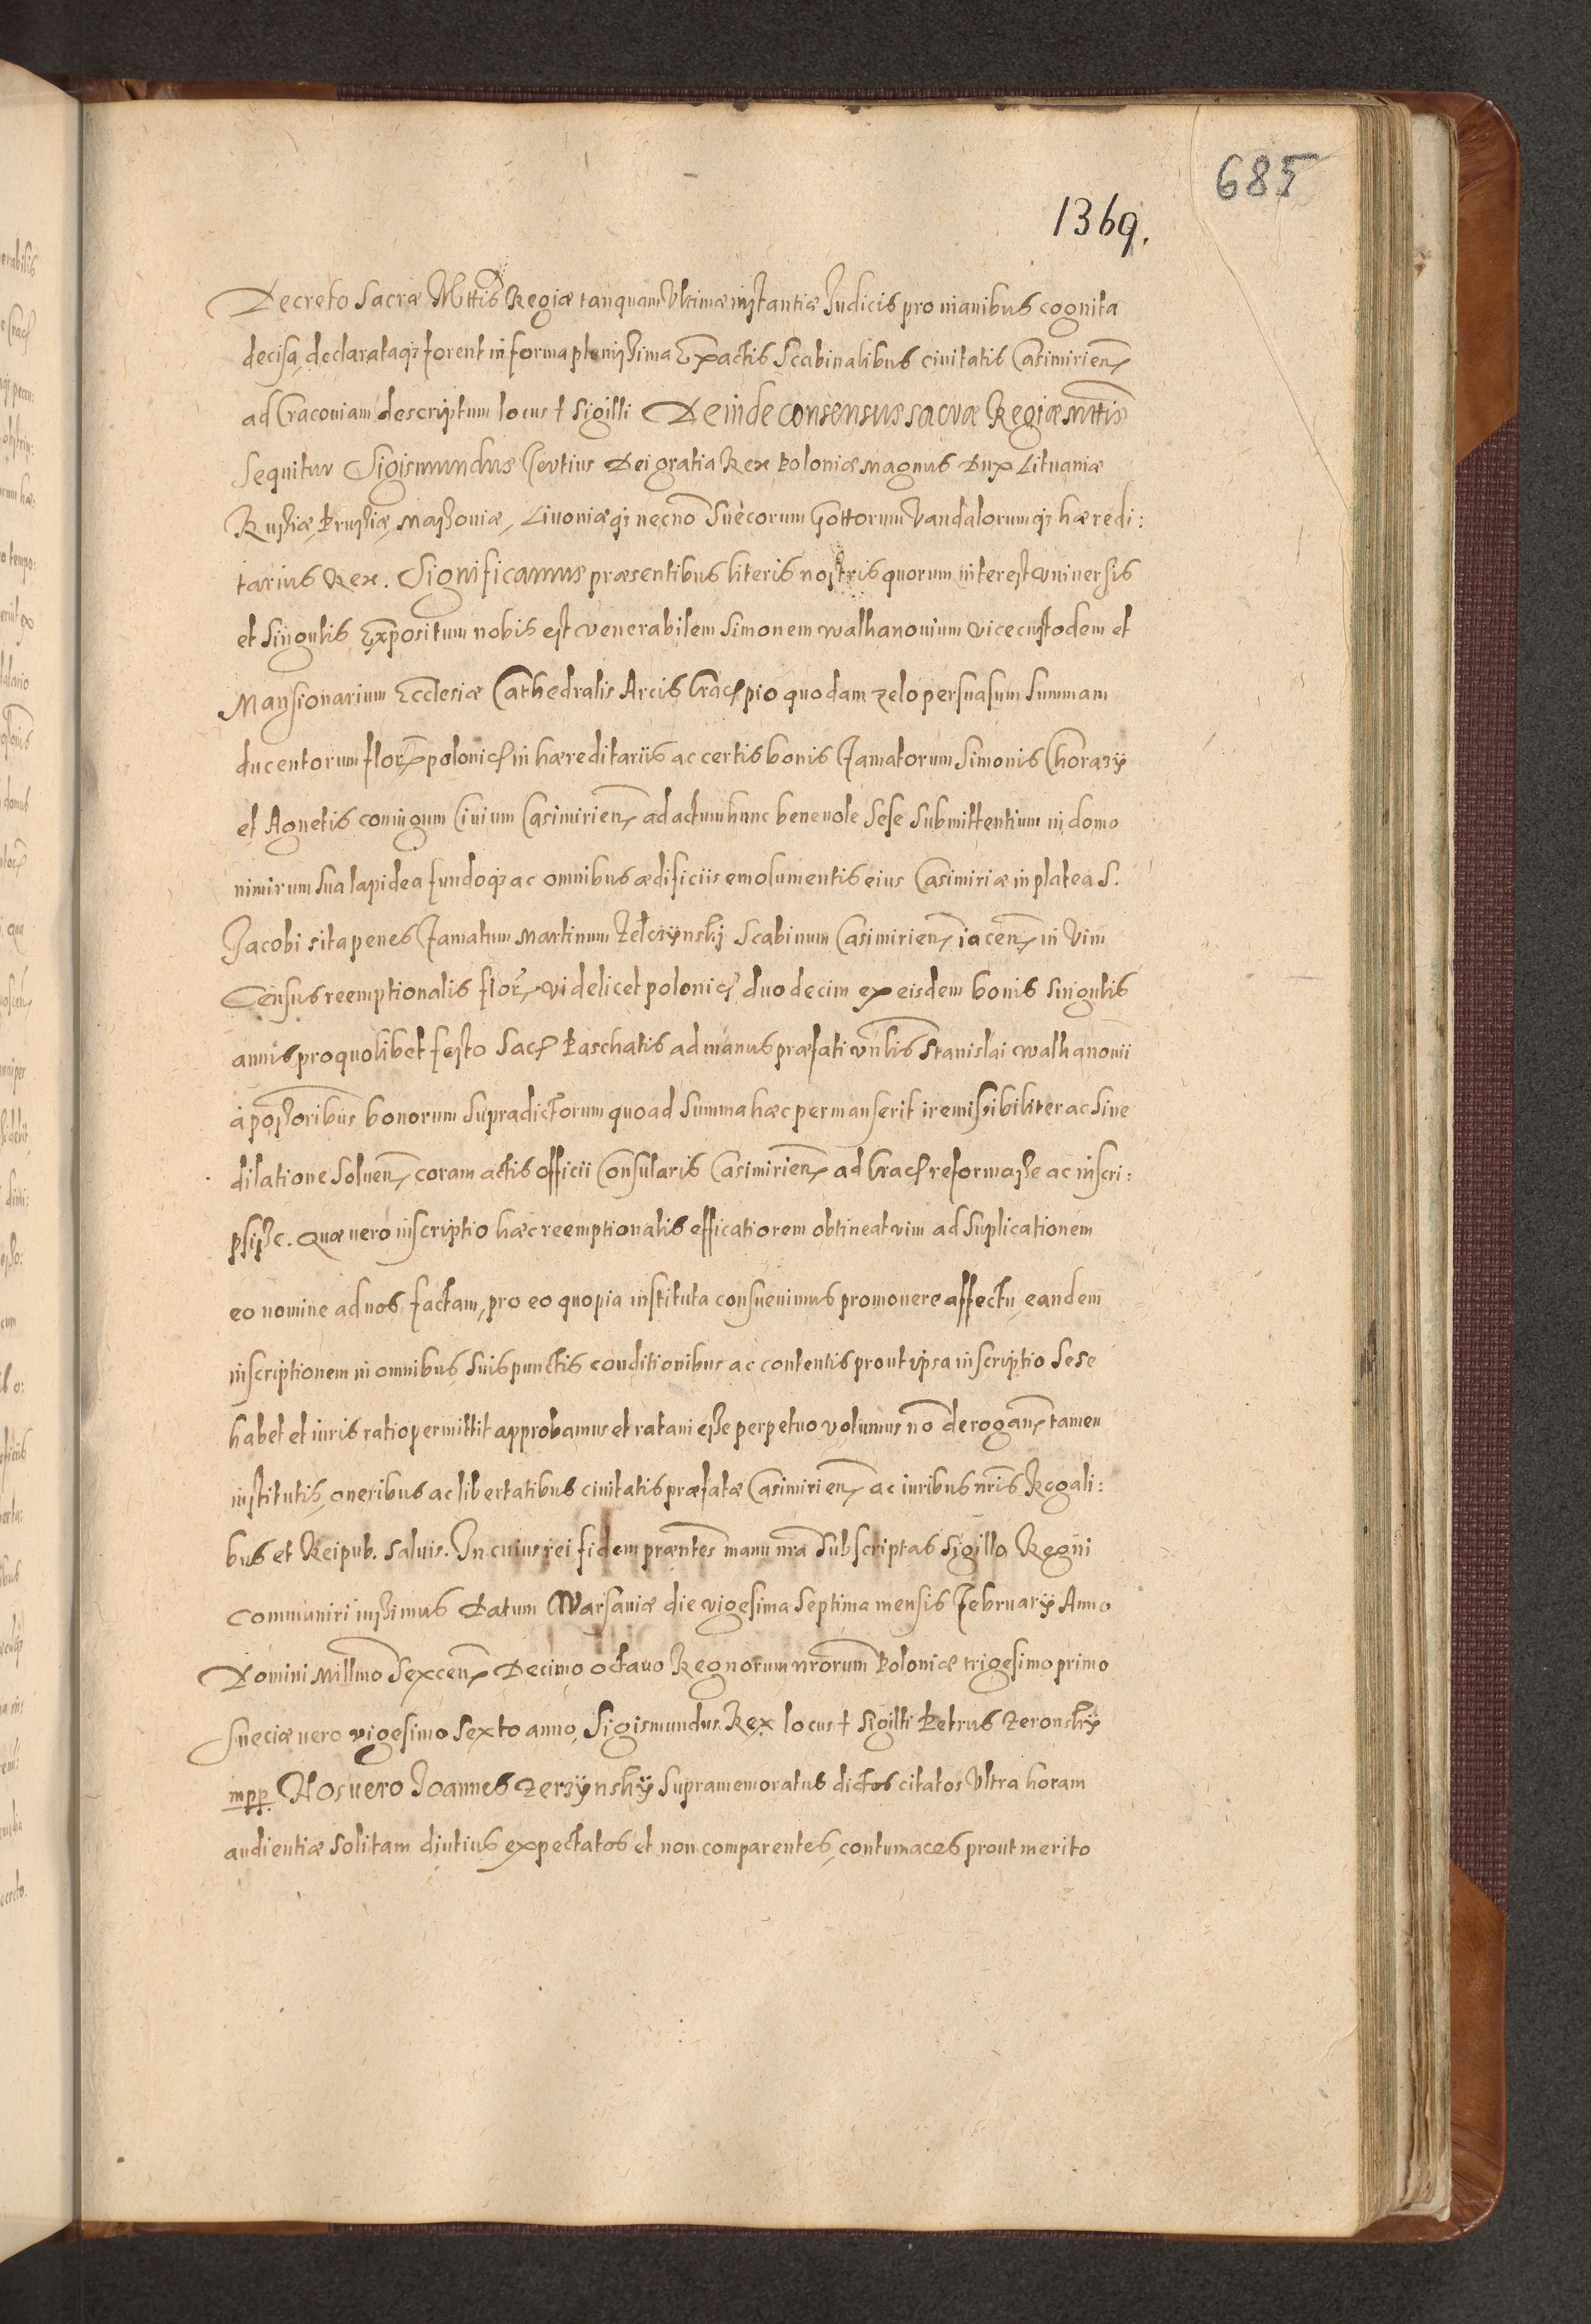 685
1369.
Decreto Sacræ Mttis Regiæ tanquam Ultimæ instantiæ Judicis pro manibus cognita
decisa declarataq3 forent in forma plenissima Ex actis Scabinalibus ciuitatis Casimirien
ad Cracouiam descriptum locus † Sigilli Deinde consensus sacræ Regiæ Mttis
Sequitur Sigismundus Tertius Dei gratia Rex Poloniæ Magnus Dux Lituaniæ
Russiæ, Prussiæ, Massouiæ, Liuoniæq3 necnō Suecorum Gottorum Vandalorumq3 hæredi:
tarius Rex. Significamus præsentibus literis nostris quorum interest vniuersis
et Singulis Expositum nobis est venerabilem Simonem Walhanouium Vicecustodem et
Mansionarium Ecclesiæ Cathedralis Arcis Crac pio quodam zelo persuasum Summam
ducentorum flor polonic in hæreditariis ac certis bonis Famatorum Simonis Chorazÿ
et Agnetis coniugum Ciuium Casimirien ad actum hunc beneuole Sese Submittentium in domo
nimirum Sua lapidea fundoq3 ac omnibus ædificiis emolumentis eius Casimiriæ in platea S.
Jacobi sita penes Famatum Martinum Zelczÿnskj Scabinum Casimirien iacen in Vim
Census reemptionalis flor videlicet polonic duodecim ex eisdem bonis Singulis
annis pro quolibet festo Sac Paschatis ad manus præfati vnlis Stanislai Walhanouii
à possoribus bonorum Supradictorum quoad Summa hæc permanserit iremissibiliter ac Sine
dilatione Soluen coram actis officii Consularis Casimirien ad Crac reformasse ac inscri:
psisse. Quæ uero inscriptio hæc reemptionalis efficatiorem obtineat vim ad Suplicationem
eo nomine ad nos factam, pro eo quo pia instituta consueuimus promouere affectu eandem
inscriptionem in omnibus Suis punctis conditionibus ac contentis prout ipsa inscriptio Sese
habet et iuris ratio permittit approbamus et ratam esse perpetuo volumus nō derogan tamen
institutis, oneribus ac libertatibus ciuitatis præfatæ Casimirien ac iuribus nris Regali:
bus et Reipub. Saluis. In cuius rei fidem præntes manu nra Subscriptas Sigillo Regni
Communiri iussimus Datum Warsauiæ die vigesima Septima mensis Februarÿ Anno
Domini Millmo Sexcen Decimo octauo Regnorum nrorum Poloniæ trigesimo primo
Sueciæ uero vigesimo Sexto anno, Sigismundus Rex locus † Sigilli Petrus Zeronskÿ
mpp. Nos uero Joannes Zerzÿnskÿ Supramemoratus dictos citatos Ultra horam
audientiæ Solitam diutius expectatos et non comparentes, contumaces prout merito